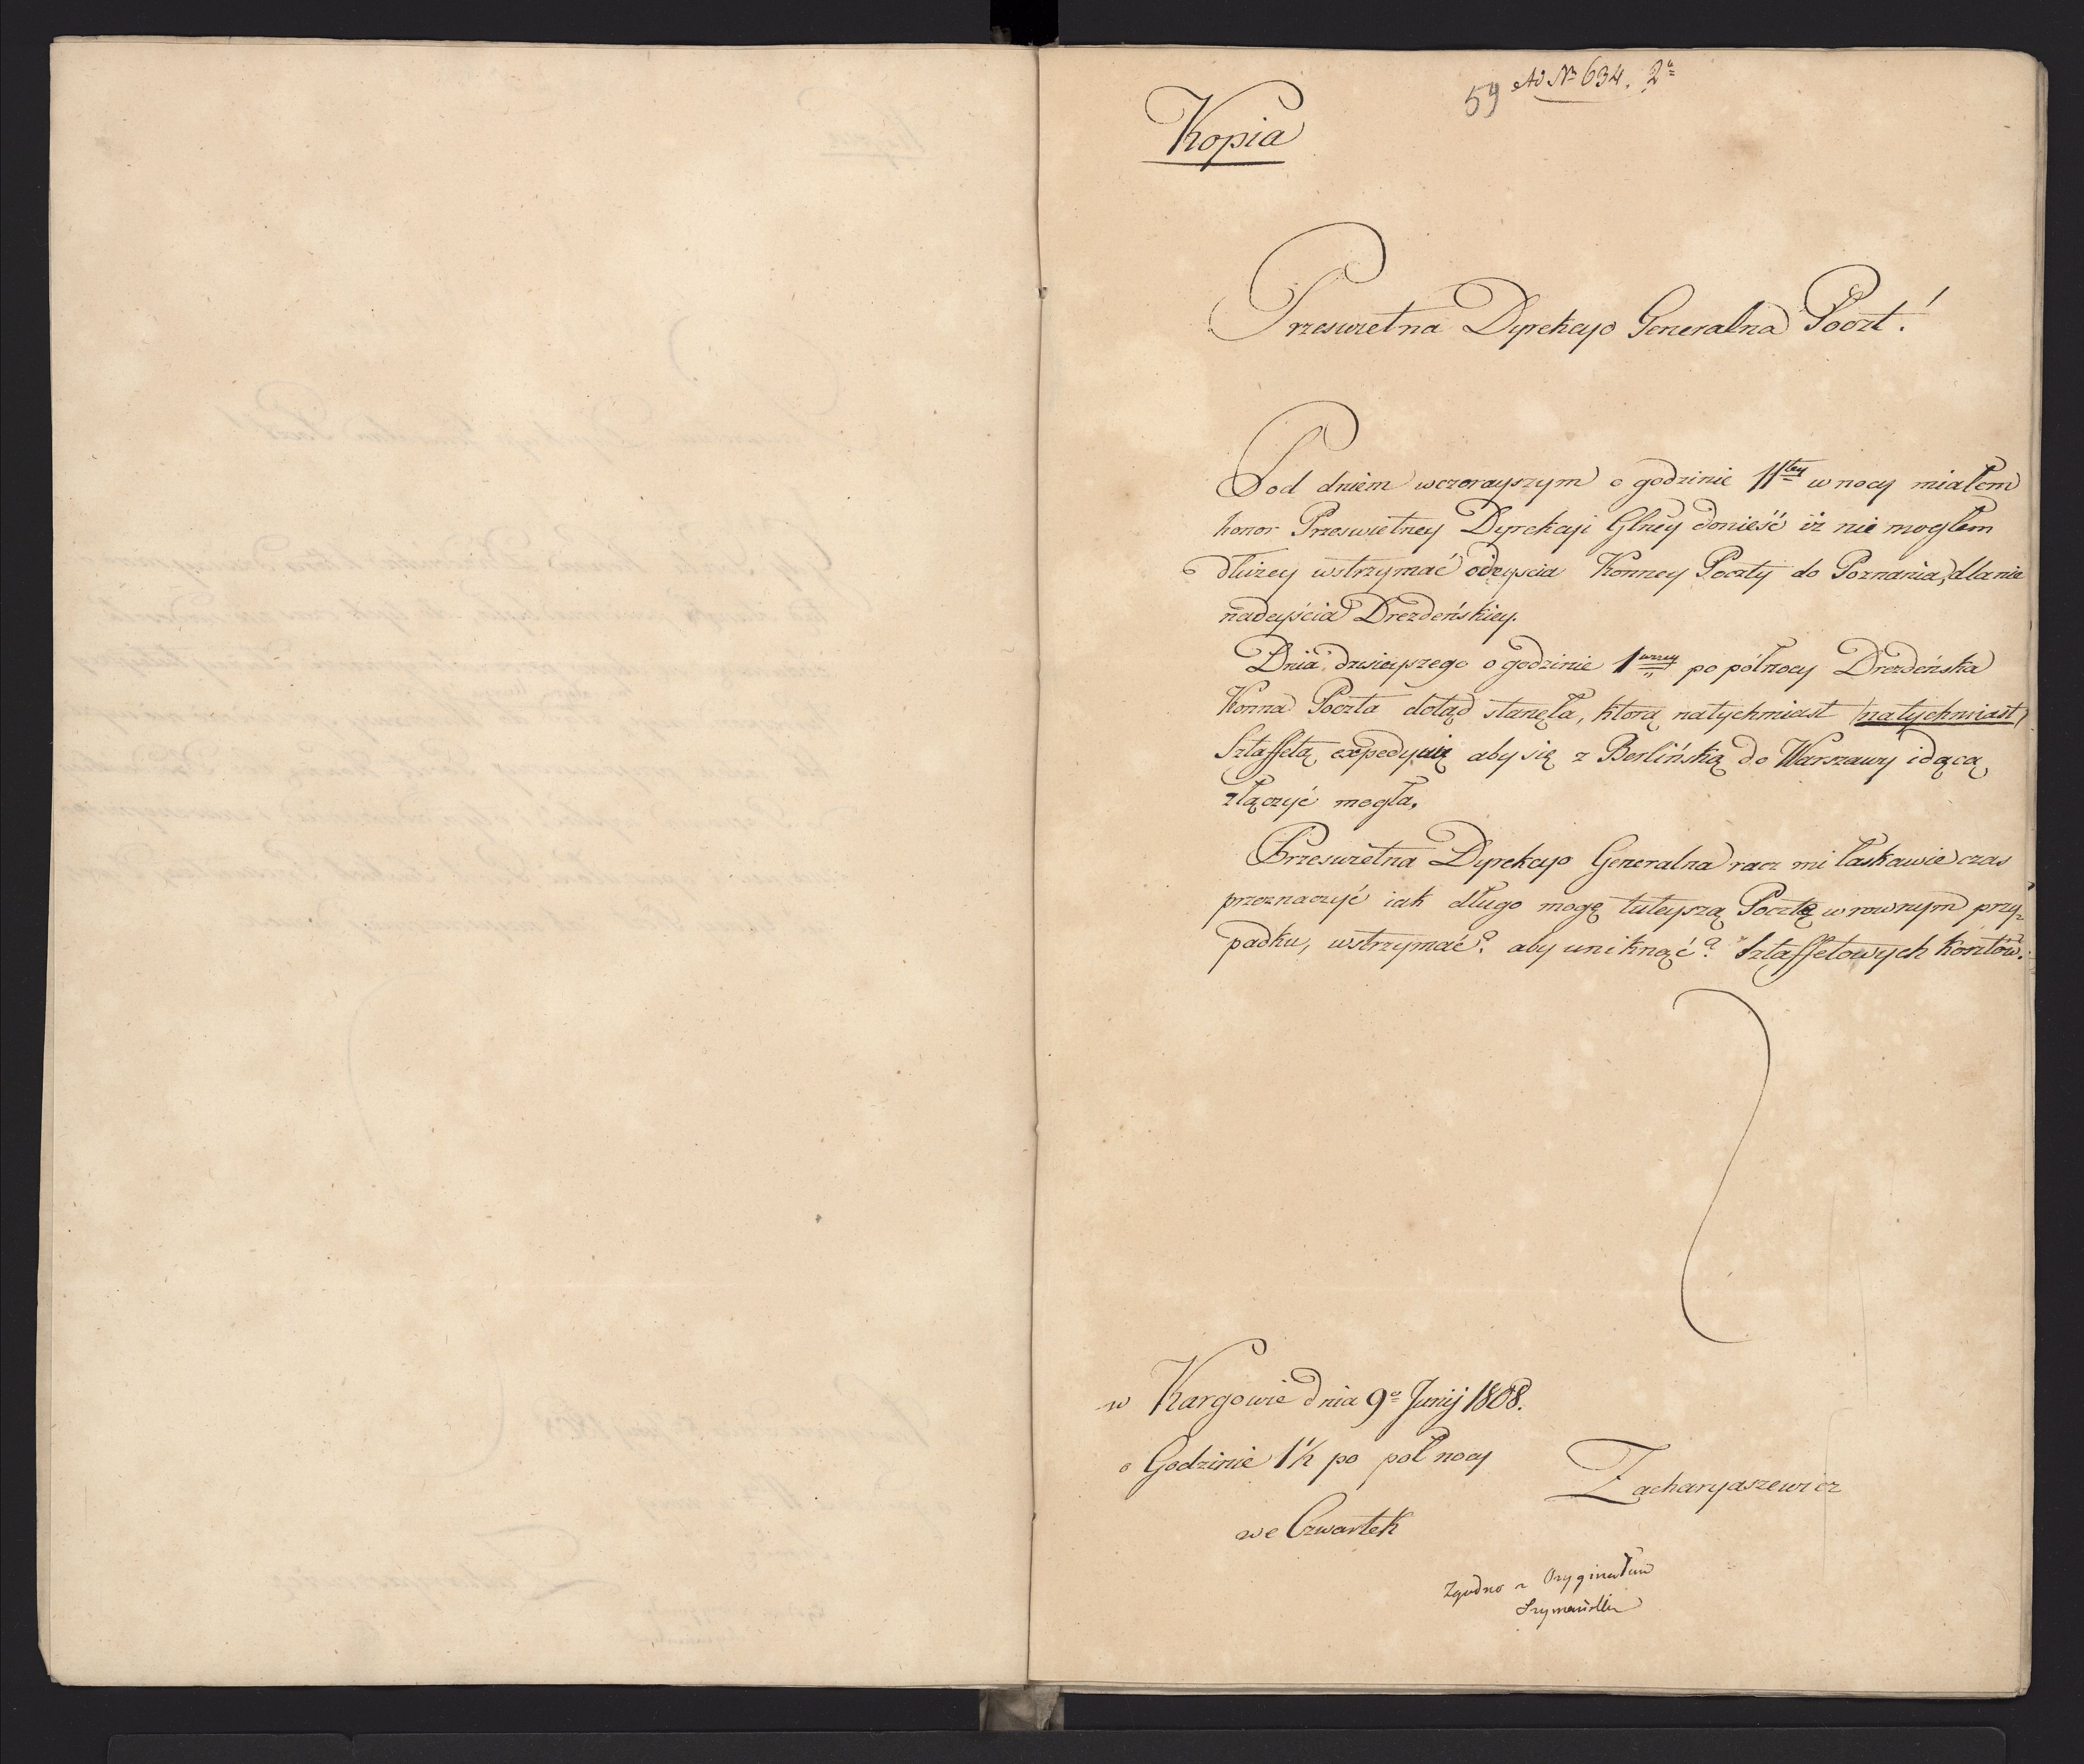 59 Ad No 634. 2a
Kopia
Przeswietna Dyrekcyo Generalna Poczt!
Pod dniem wczorayszym o godzinie 11tey w nocy miałem
honor Przeswietney Dyrekcyi Glney donieść iż nie mogłem
dłużey wstrzymać odeyscia Konney Poczty do Poznania, dla nie
nadeyścia Drezdeńskiey.
Dnia dzisieyszego o godzinie 1wszey po północy Drezdeńska
Konna Poczta dotąd stanęła, ktorą natychmiast (natychmiast)
Sztaffetą expedyuię aby się z Berlińską do Warszawy idącą
złączyć mogła.
Przeswietna Dyrekcyo Generalna racz mi łaskawie czas
przeznaczyć iak długo mogę tuteyszą Pocztę w rownym przy-
padku, wstrzymać? aby uniknąć? Sztaffetowych kosztów.
w Kargowie dnia 9o Junij 1808.
o Godzinie 1 1/2 po połnocy
we Czwartek
Zacharyaszewicz
Zgodno z Oryginałem